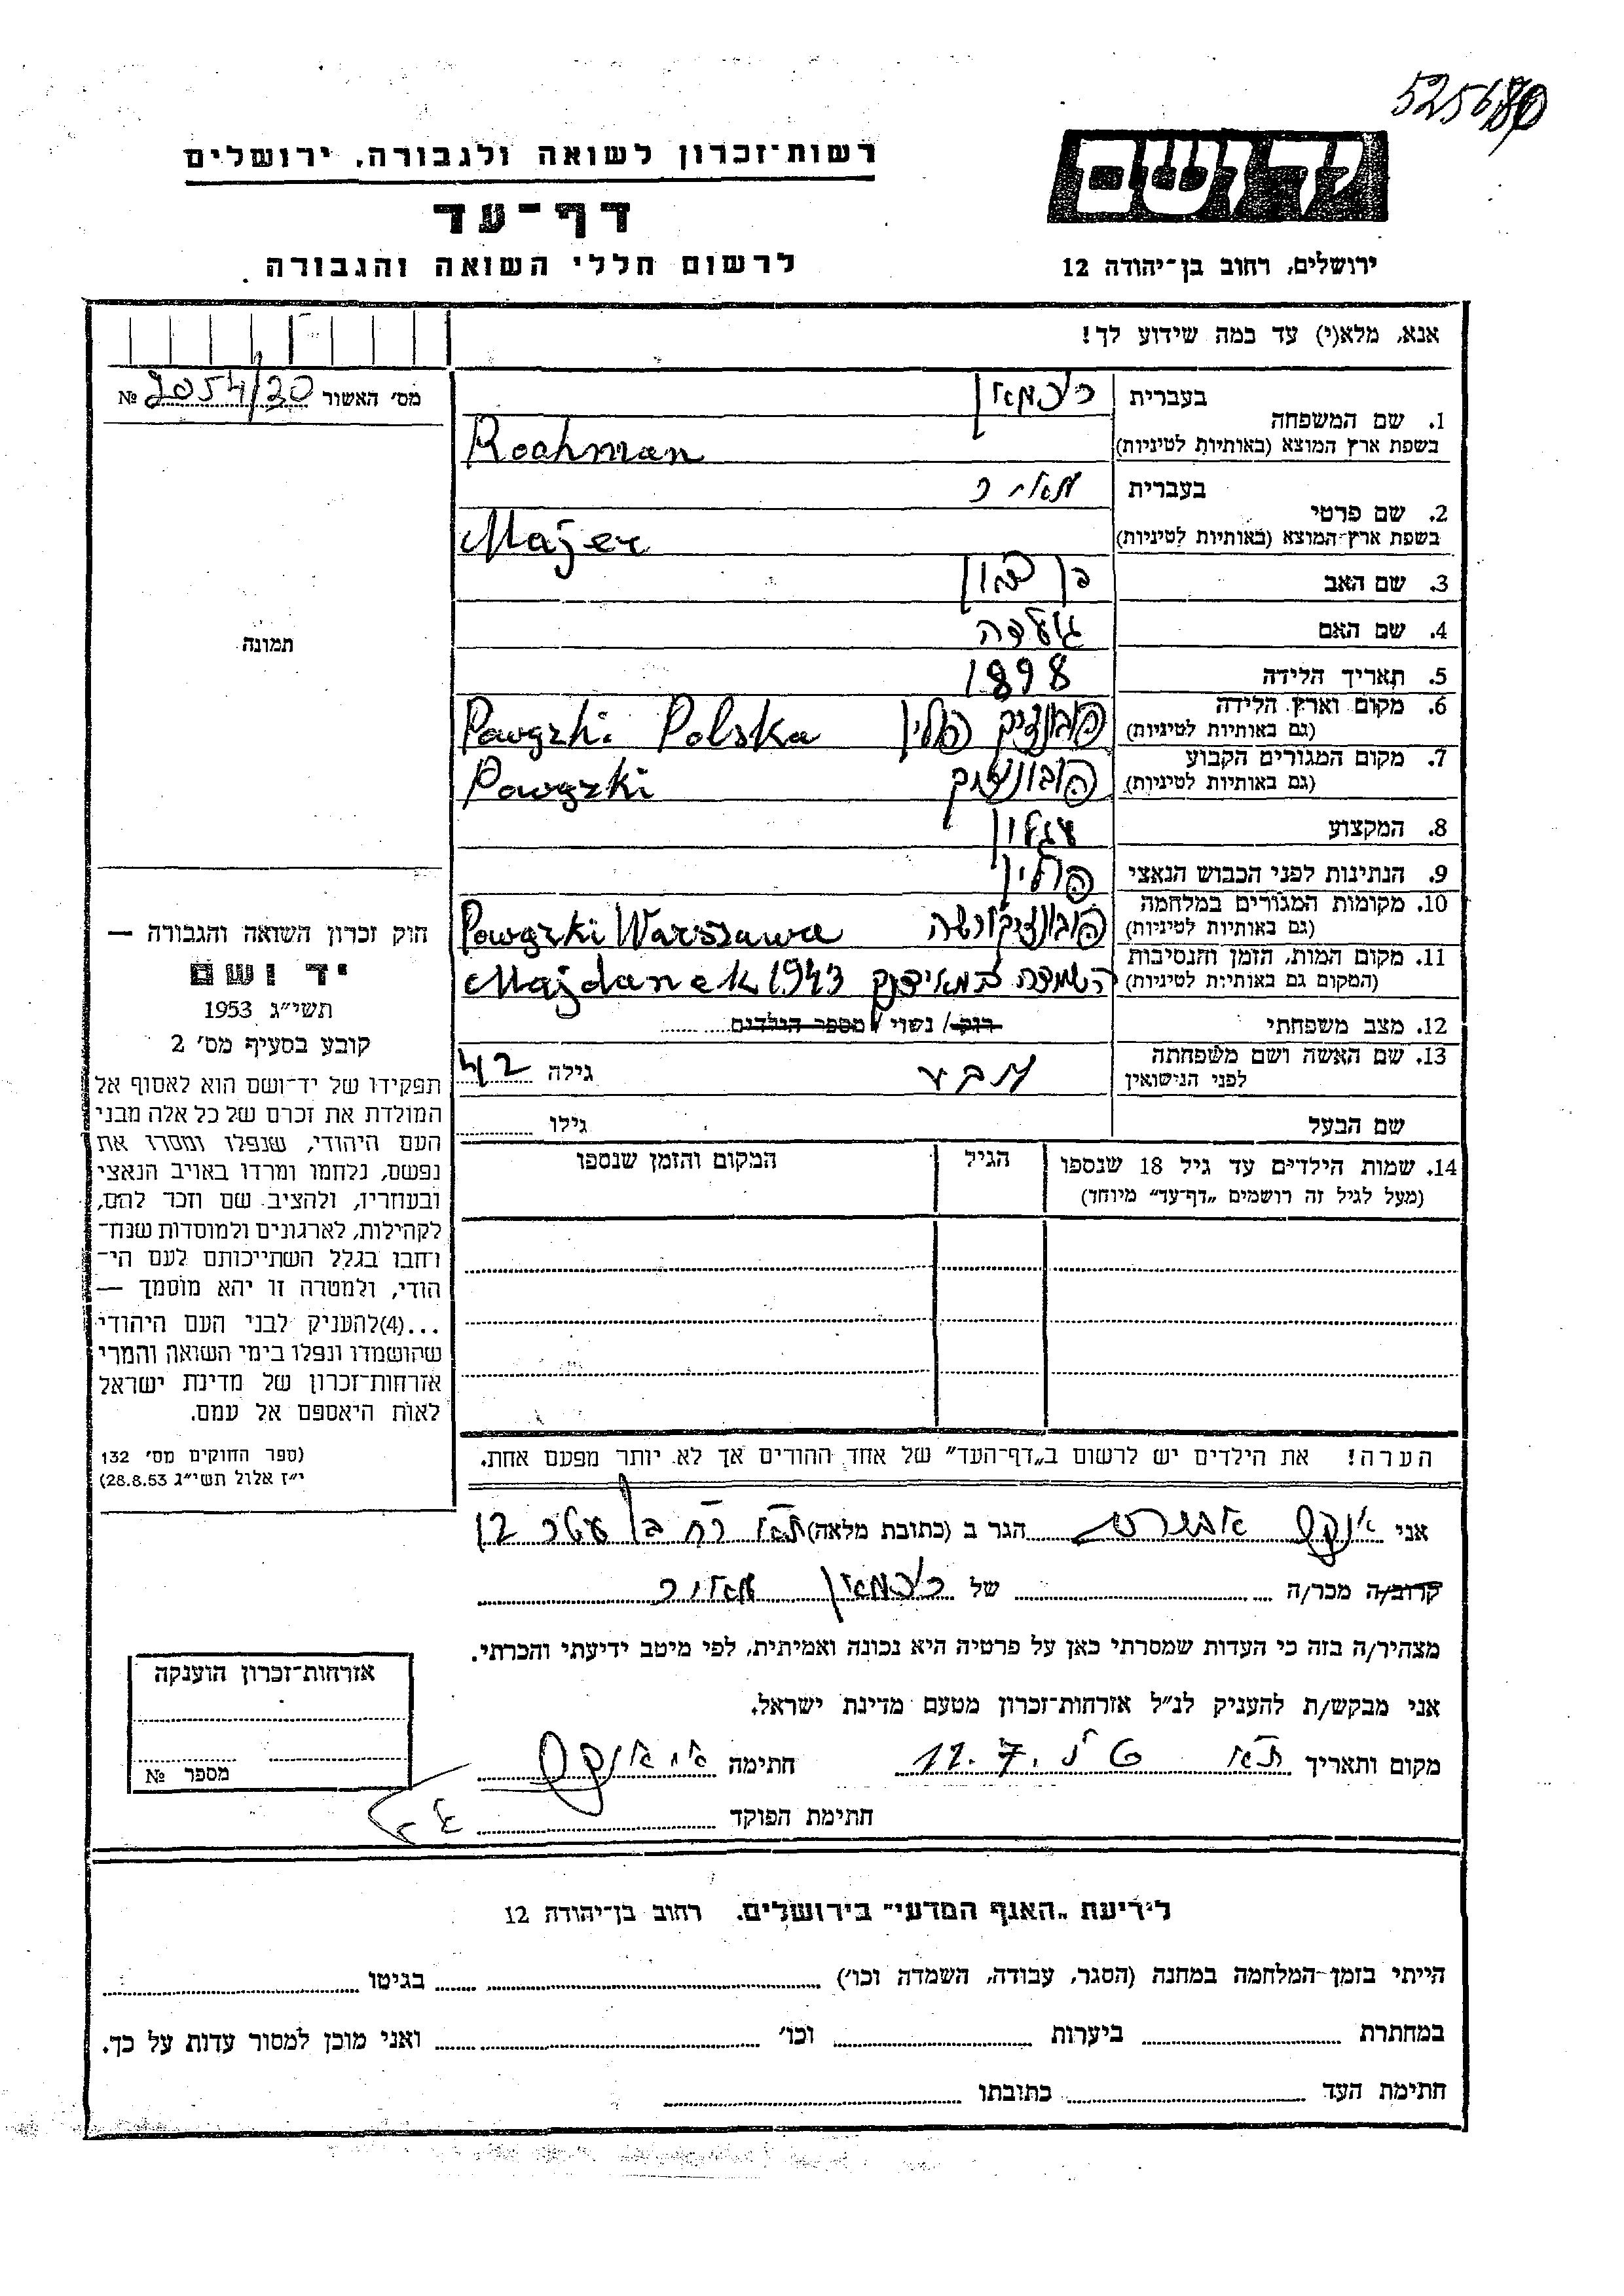 525680
יד ושם
רשות־זכרון לשואה ולגבורה, ירושלים
דף־עד
לרשום חללי השואה והגבורה
ירושלים, רחוב בן־יהודה 12
אנא, מלא(י) עד כמה שידוע לך!
מס׳ האשור 2054/20 №
1. שם המשפחה
בעברית
בשפת ארץ המוצא (באותיות לטיניות) Rochman
2. שם פרטי
בעברית מאיר
בשפת ארץ־המוצא (באותיות לטיניות) Majer
3. שם האב
4. שם האם גולדה
5. תאריך הלידה 1898
6. מקום וארץ הלידה
(גם באותיות לטיניות) פולין Powązki Polska
7. מקום המגורים הקבוע
(גם באותיות לטיניות) Powązki
8. המקצוע עגלון
9. הנתינות לפני הכבוש הנאצי פולין
10. מקומות המגורים במלחמה
(גם באותיות לטיניות) Powązki Warszawa
11. מקום המות, הזמן והנסיבות
(המקום גם באותיות לטיניות) Majdanek 1943
12. מצב משפחתי רוק/ נשוי/ מספר הילדים
13. שם האשה ושם משפחתה
לפני הנישואין גילה 42
שם הבעל גילו
14. שמות הילדים עד גיל 18 שנספו
(מעל לגיל זה רושמים „דף־עד״ מיוחד)
הגיל
המקום והזמן שנספו
הערה! את הילדים יש לרשום ב„דף־העד״ של אחד ההורים אך לא יותר מפעם אחת.
תמונה
חוק זכרון השואה והגבורה —
יד ושם
תשי״ג 1953
קובע בסעיף מס׳ 2
תפקידו של יד־ושם הוא לאסוף אל
המולדת את זכרם של כל אלה מבני
העם היהודי, שנפלו ומסרו את
נפשם, נלחמו ומרדו באויב הנאצי
ובעוזריו, ולהציב שם וזכר להם,
לקהילות, לארגונים ולמוסדות שנח־
רחבו בגלל השתייכותם לעם הי־
הודי, ולמטרה זו יהא מוסמך —
...(4)להעניק לבני העם היהודי
שהושמדו ונפלו בימי השואה והמרי
אזרחות־זכרון של מדינת ישראל
לאות היאספם אל עמם.
(ספר החוקים מס׳ 132
י״ז אלול תשי״ג 28.8.53)
אני הגר ב (כתובת מלאה)
קרוב/ה מכר/ה של מאיר
מצהיר/ה בזה כי העדות שמסרתי כאן על פרטיה היא נכונה ואמיתית, לפי מיטב ידיעתי והכרתי.
אני מבקש/ת להעניק לנ״ל אזרחות־זכרון מטעם מדינת ישראל.
מקום ותאריך חתימה
חתימת הפוקד
אזרחות־זכרון הוענקה
מספר №
לידיעת „האגף המדעי״ בירושלים. רחוב בן־יהודה 12
הייתי בזמן־המלחמה במחנה (הסגר, עבודה, השמדה וכו׳) בגיטו
במחתרת ביערות וכו׳ ואני מוכן למסור עדות על כך.
חתימת העד כתובתו